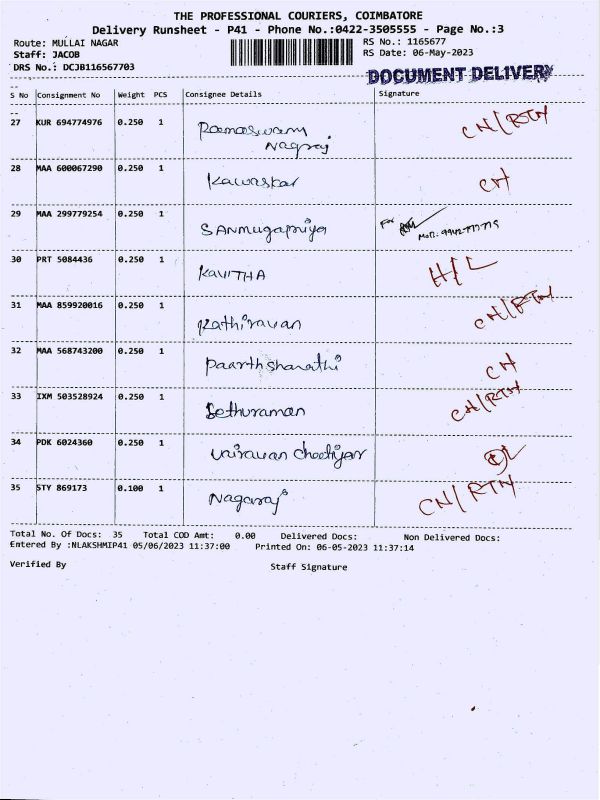 THE PROFESSIONAL COURIERS, COIMBATORE
Delivery Runsheet - P41 - Phone No.:0422-3505555 - Page No.:3
Route: MULLAI NAGAR RS No.: 1165677
Staff: JACOB RS Date: 06-May-2023
DRS No.: DCJB116567703
DOCUMENT DELIVERY
S No Consignment No Weight PCS Consignee Details Signature
27 KUR 694774976 0.250 1 Ramaswamy Nagraj CN/RTN
28 MAA 600067290 0.250 1 Kawaskar CH
29 MAA 299779254 0.250 1 SANMugapriya For
30 PRT 5084436 0.250 1 KAVITHA H/L
31 MAA 859920016 0.250 1 Kathiravan CN/RTN
32 MAA 568743200 0.250 1 Paarthsharathi CH
33 IXM 503528924 0.250 1 Sethuraman CN/RTN
34 PDK 6024360 0.250 1 Vairavan Chettiyar
35 STY 869173 0.100 1 Nagaraj CN/RTN
Total No. Of Docs: 35 Total COD Amt: 0.00 Delivered Docs: Non Delivered Docs:
Entered By :NLAKSHMIP41 05/06/2023 11:37:00 Printed On: 06-05-2023 11:37:14
Verified By Staff Signature